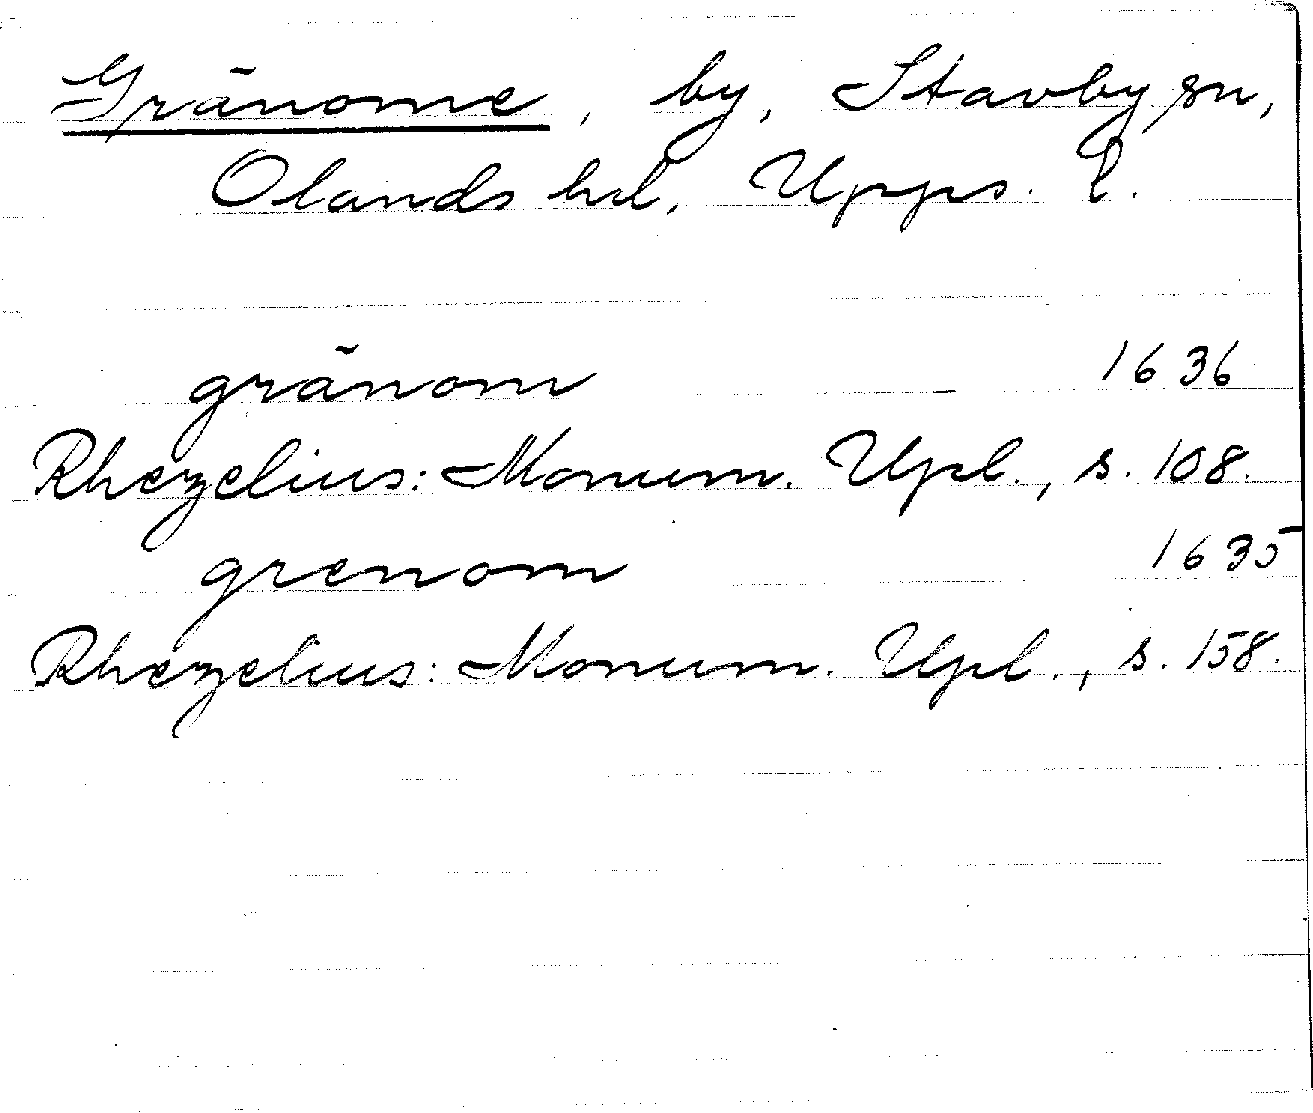 Gränome, by, Stavby sn,
Olands hd, Upps. l.
gränom 1636
Rhezelius: Monum. Upl., s. 108.
grenom 1635
Rhezelius: Monum. Upl., s. 158.